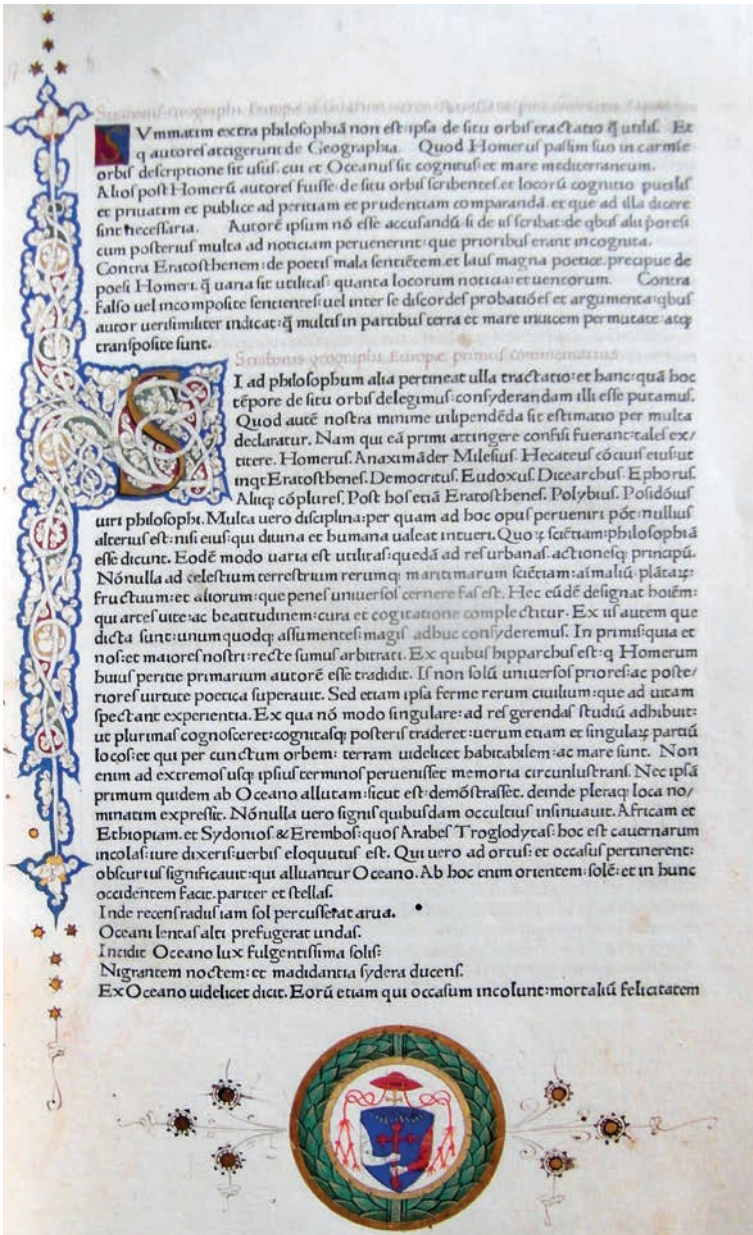 Strabonis geographi Europae
SVmmatim extra philosophiā non est ipsa de situ orbis tractatio q̄ utilis. Et
q autores attigerunt de Geographia. Quod Homerus passim suo in carmīe
orbis descriptione sit usus. cui et Oceanus sit cognitus et mare mediterraneum.
Alios post Homerū autores fuisse de situ orbis scribentes. et locorū cognitio putilis
et priuatim et publice ad peritiam et prudentiam comparandā. et que ad illa dicere
sint necessaria. Autorē ipsum nō esse accusandū si de iis scribat de qbus alii pores
cum posterius multa ad noticiam peruenerint: que prioribus erant incognita.
Contra Eratosthenem: de poetis mala sentiētem. et laus magna poetice. precipue de
poesi Homeri. q̄ uaria sit utilitas: quanta locorum noticia: et uentorum. Contra
falso uel incomposite sentientes: uel inter se discordes probatiōes et argumenta: qbus
autor uerisimiliter indicat: q̄ multis in partibus terra et mare inuicem permutate atq;
transposite sunt.
Strabonis geographi Europae primus commentarius
SI ad philosophum alia pertineat ulla tractatio: et hanc: quā hoc
tēpore de situ orbis delegimus: consyderandam illi esse putamus.
Quod autē nostra minime uilipendēda sit estimatio per multa
declaratur. Nam qui eā primi attingere confisi fuerant: tales ex/
titere. Homerus. Anaximāder Milesius. Hecateus cōciuis eius: ut
inqt Eratosthenes. Democritus. Eudoxus. Dicearchus. Ephorus.
Aliiq; cōplures. Post hos etiā Eratosthenes. Polybius. Posidōius
uiri philosophi. Multa uero disciplina: per quam ad hoc opus perueniri pōt: nullius
alterius est: nisi eius: qui diuina et humana ualeat intueri. Quoꝝ sciētiam: philosophiā
esse dicunt. Eodē modo uaria est utilitas: quedā ad res urbanas. actionesq; principū.
Nōnulla ad celestium terrestrium rerumq; maritimarum sciētiam: aīmaliū plātaꝝ:
fructuum: et aliorum: que penes uniuersos cernere fas est. Hec eūdē designat hoīem:
qui artes uite: ac beatitudinem: cura et cogitatione complectitur. Ex iis autem que
dicta sunt: unum quodq; assumentes: magis adhuc consyderemus. In primis: quia et
nos: et maiores nostri: recte sumus arbitrati. Ex quibus hipparchus est: q Homerum
huius peritie primarium autorē esse tradidit. Is non solū uniuersos priores: ac poste/
riores uirtute poetica superauit. Sed etiam ipsa ferme rerum ciuilium: que ad uitam
spectant experientia. Ex qua nō modo singulare: ad res gerendas studiū adhibuit:
ut plurimas cognosceret: cognitasq; posteris traderet: uerum etiam et singulaꝝ partiū
locos: et qui per cunctum orbem: terram uidelicet habitabilem: ac mare sunt. Non
enim ad extremos usq; ipsius terminos peruenisset memoria circunlustrans. Nec ipsā
primum quidem ab Oceano allutam: sicut est: demōstrasset. deinde pleraq; loca no/
minatim expressit. Nōnulla uero signis quibusdam occultius insinuauit. Africam et
Ethiopiam. et Sydonios & Erembos: quos Arabes Troglodytas: hoc est cauernarum
incolas: iure dixeris: uerbis eloquutus est. Qui uero ad ortus: et occasus pertinerent:
obscurius significauit: qui alluantur Oceano. Ab hoc enim orientem: solē: et in hunc
occidentem facit. pariter et stellas.
Inde recens radiis iam sol percusserat arua.
Oceani lentas alti prefugerat undas.
Incidit Oceano lux fulgentissima solis:
Nigrantem noctem: et madidantia sydera ducens.
Ex Oceano uidelicet dicit. Eorū etiam qui occasum incolunt: mortaliū felicitatem